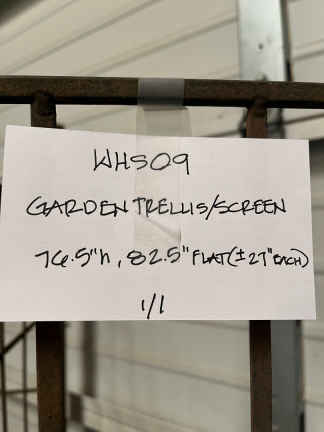 WHS09
GARDEN TRELLIS/SCREEN
76.5"h, 82.5" FLAT(±27" EACH)
1/1